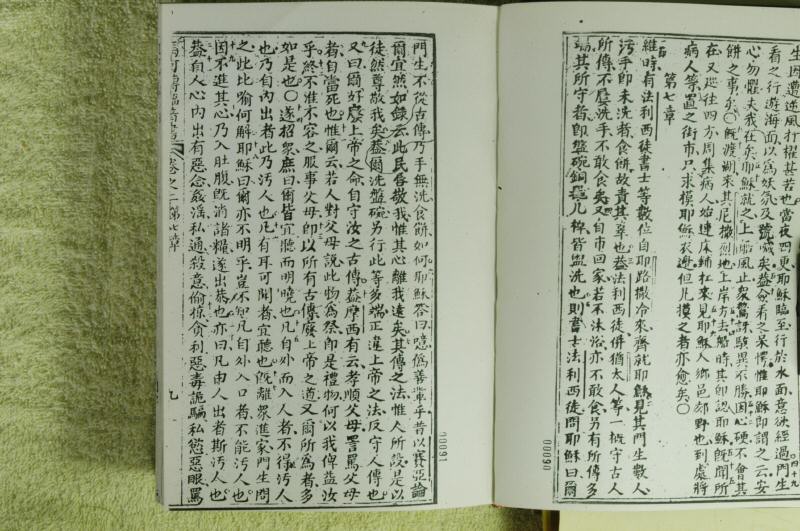 生因遭逆風打櫂甚苦也當夜四更耶穌臨至行於水面意欲經過門生
看之行遊海面以爲妖氛及號喊矣益僉看之呆愕惟耶穌即謂之云安
心勿懼夫我在矣而穌就之上船風止衆驚訝駭異不勝因心硬不會其
餅之事矣〇既渡湖來其尼撒咧地上岸方去船時其即認耶穌既聞所
在又廵往四方周集病人始連床舖杠來見耶穌人鄉邑郊野也到處將
病人等置之街市只求模耶穌衣邊但凡摸之者亦愈矣〇
第七章
維時有法利西徒書士等數位自耶路撒冷來齊就耶穌見其門生數人
污手即未洗者食餅故責其辜也益法利西徒併猶太人等一概守古人
所傳不屢洗手不敢食矣又自市回家若不沐浴亦不敢食另有所傳多
端其所守者即盤碗銅 几榫皆盥洗也則書士法利西徒問耶穌曰爾
00090
門生不從古傳乃手無洗食餅如何耶穌答曰噫僞善輩乎昔以賽亞論
爾宜然如錄云此民唇敬我惟其心離我遠矣其傳之法惟人所設是以
徒然尊敬我矣益爾洗盤碗另行此等多端正違上帝之法反守人傳也
又曰爾好廢上帝之命自守汝之古傳益摩西有云孝順父母詈罵父母
者自當死也惟爾云若人對父母說此物爲祭即是禮物何以我俾益汝
乎終不准不容之服事父母即以所有古傳廢上帝之道又爾所爲者多
如是也〇遂招衆庶曰爾皆宜聽而明曉也凡自外而入人者不得污人
也乃自內出者此乃污人也凡有耳可聞者宜聽也既離衆進家門生問
之此比喻何解耶穌曰爾亦不明乎豈不知凡自外入口者不能污人也
因不進其心乃入肚腹既消諸糧遂出恭也亦曰凡由人出者斯污人也
益自人心內出有惡念姦淫私通殺意偷掠貪利惡毒詭騙私慾惡眼罵
卷之二第七章
九
00091